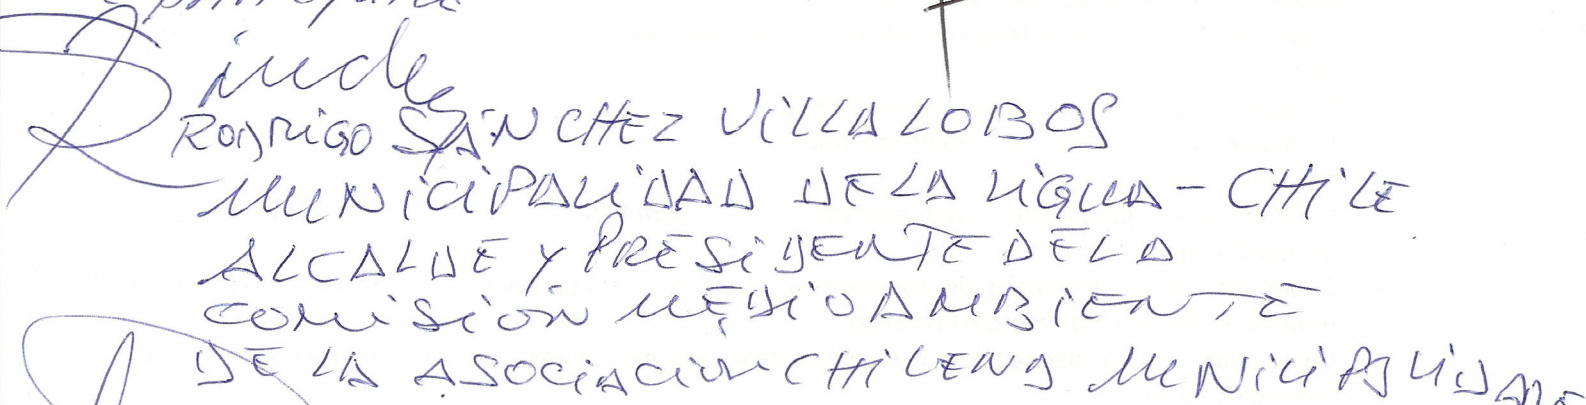 RODRIGO SÁNCHEZ VILLALOBOS
MUNICIPALIDAD DE LA LIGUA - CHILE
ALCALDE Y PRESIDENTE DE LA
COMISIÓN MEDIO AMBIENTE
DE LA ASOCIACION CHILENA MUNICIPALIDADE